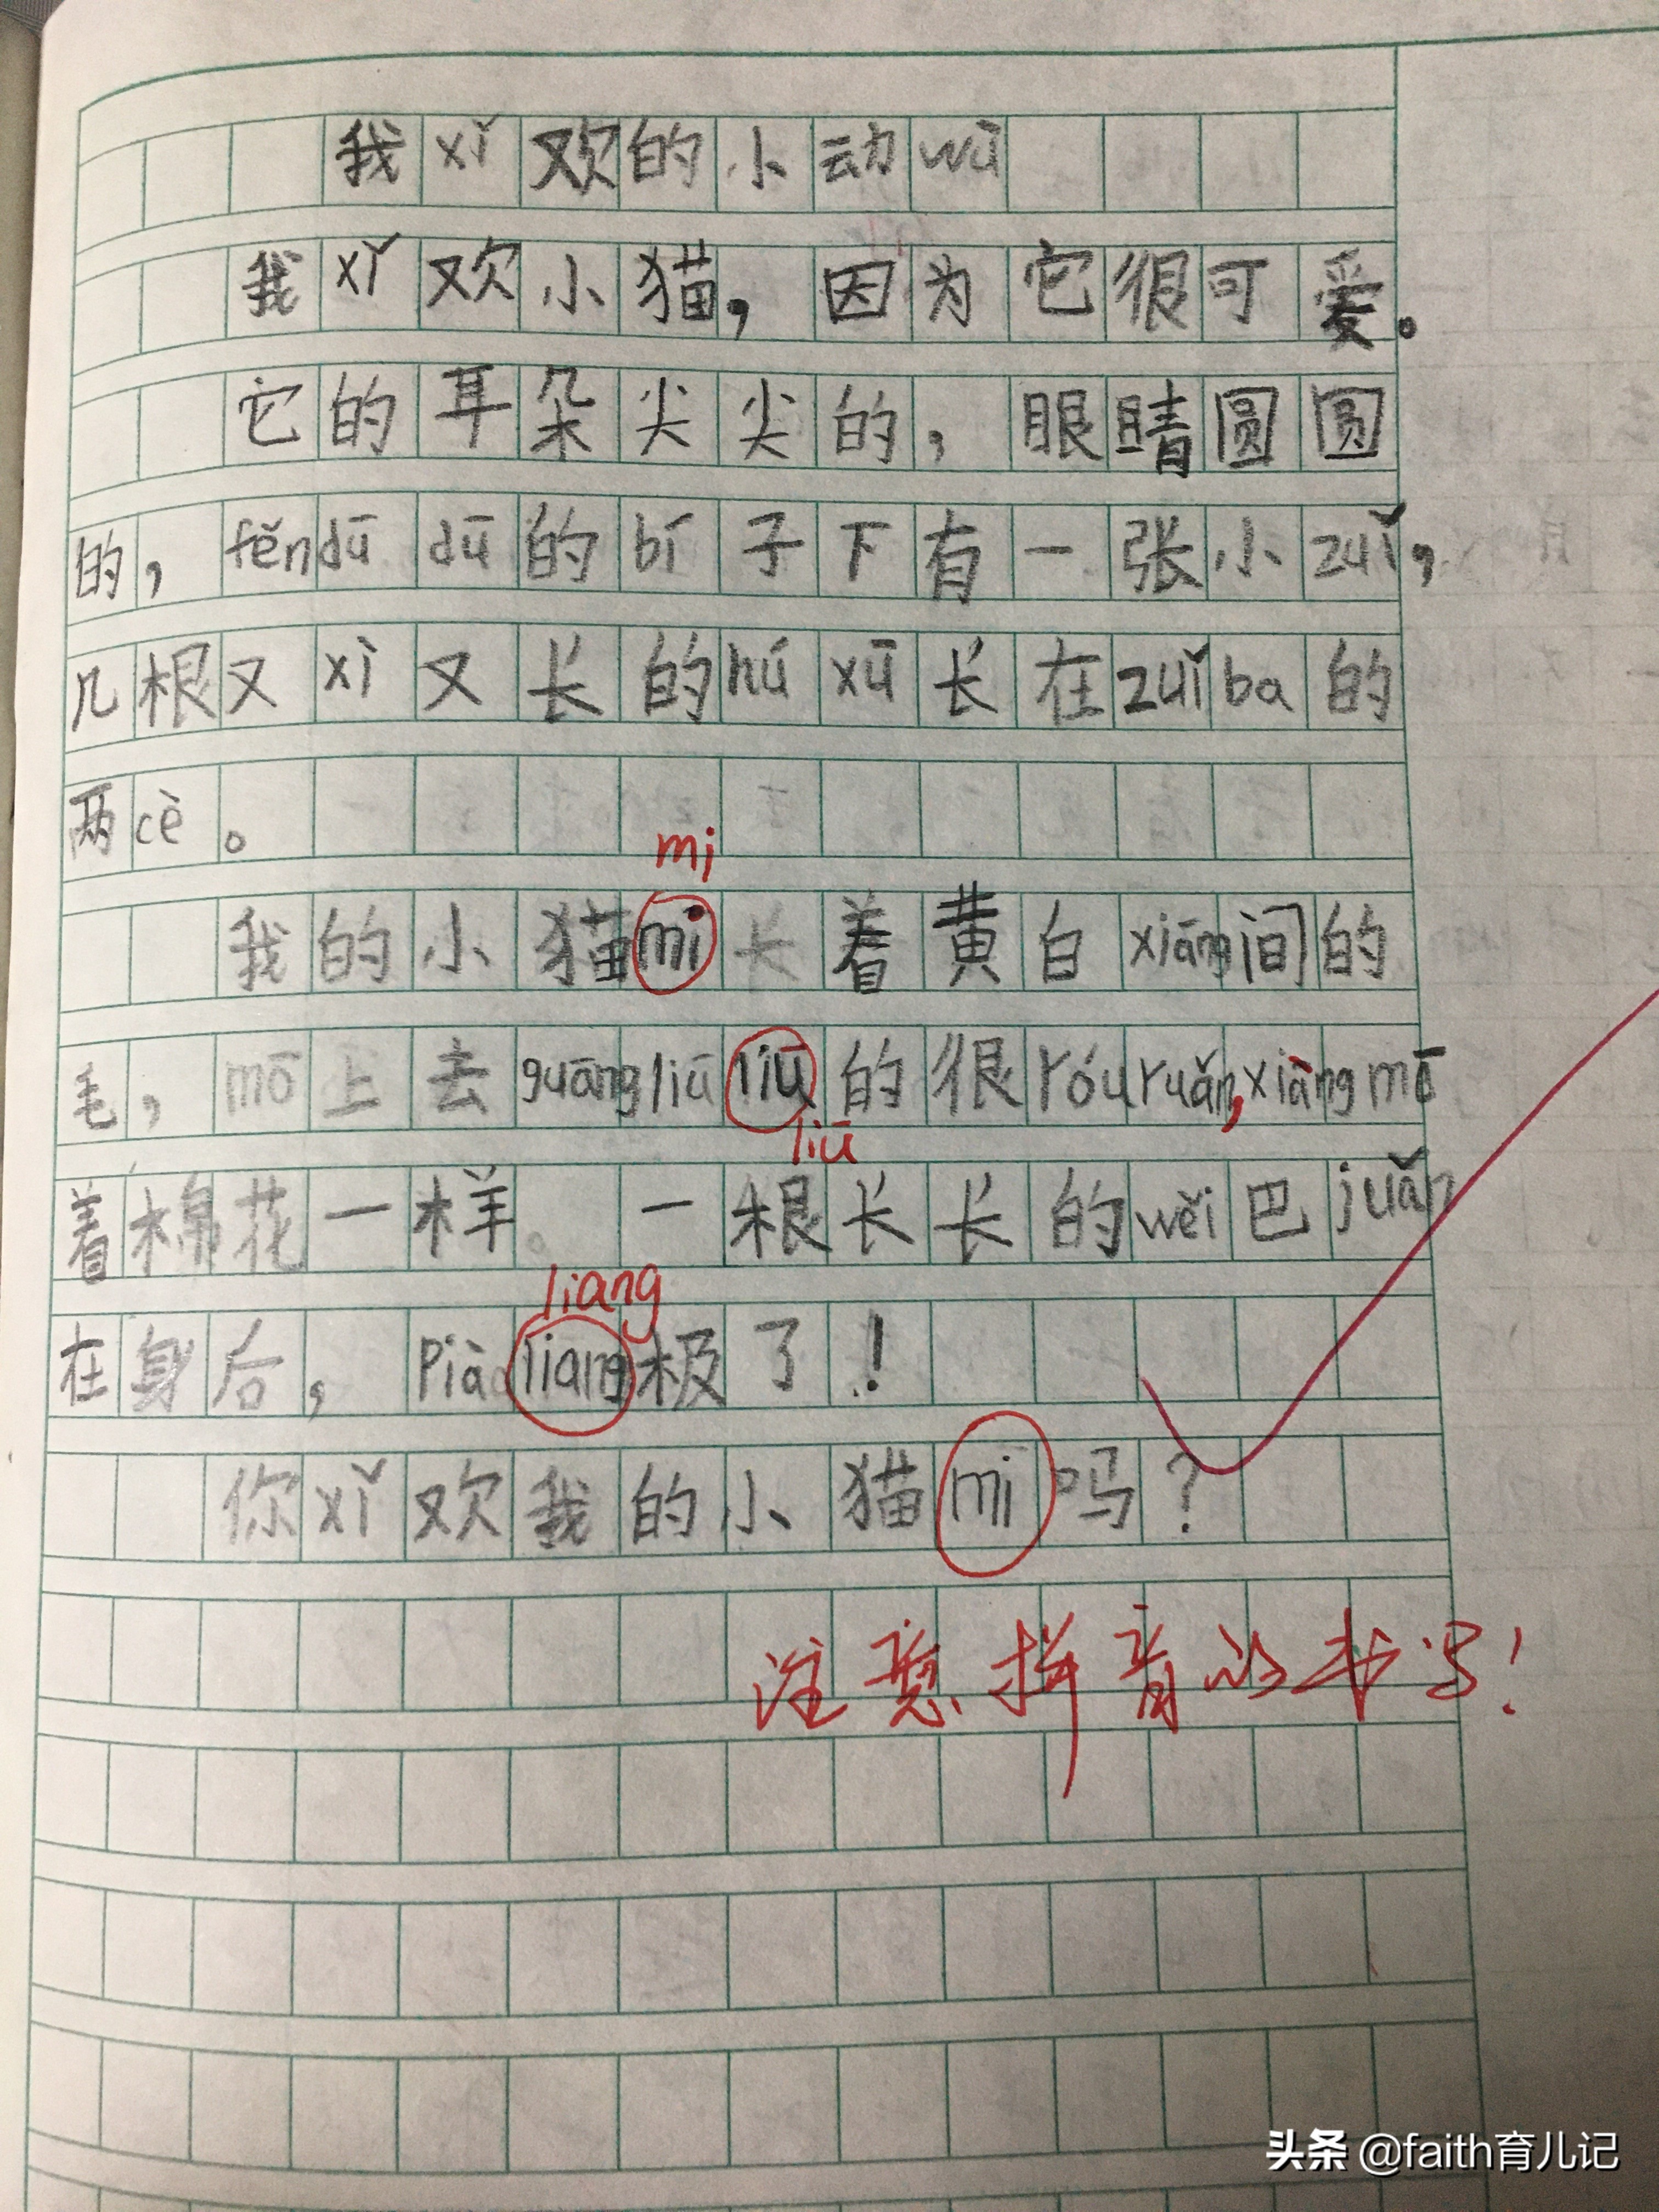 我xǐ欢的小动wū
我xǐ欢小猫，因为它很可爱。
它的耳朵尖尖的，眼睛圆圆
的，fěndū dū的bí子下有一张小zuǐ，
几根又xì又长的hú xū长在zuǐba的
两cè。
mi
我的小猫mi长着黄白xiāng间的
毛，mō上去guāngliūliū的很róuruǎn,xiàngmō
liū
着棉花一样。一根长长的wěi巴juǎn
liang
在身后，Piàoliang极了！
你xǐ欢我的小猫mī吗？
注意拼音的书写！
头条 @faith育儿记